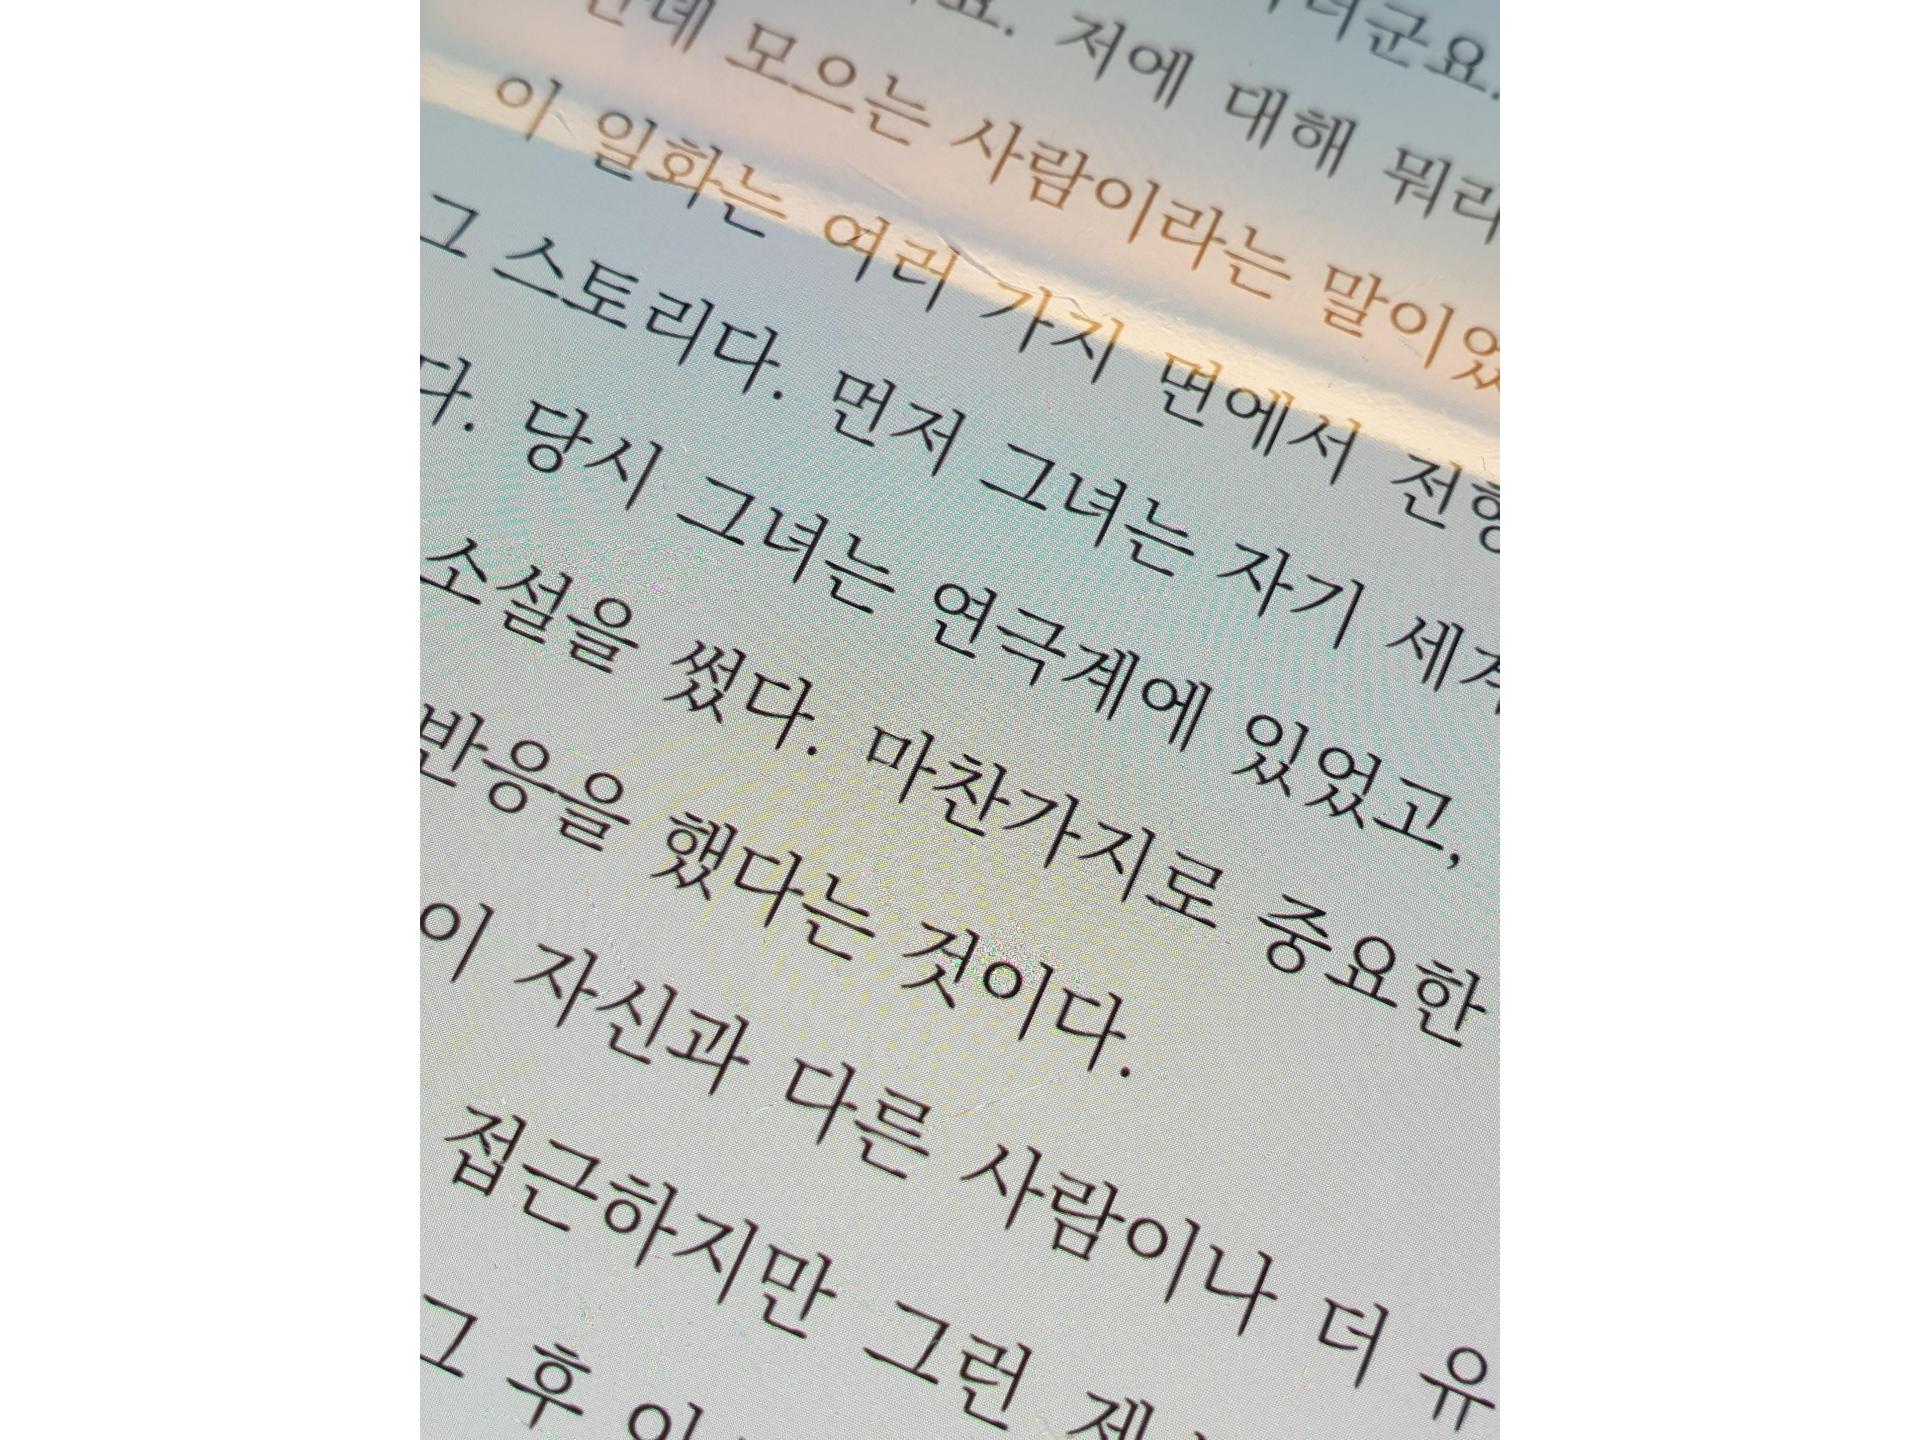 저에 대해
모으는 사람이라는
이 일화는 여러 가지 면에서
그 스토리다. 먼저 그녀는 자기
다. 당시 그녀는 연극계에 있었고,
소설을 썼다. 마찬가지로 중요한
반응을 했다는 것이다.
이 자신과 다른 사람이나 더
접근하지만 그런
그 후